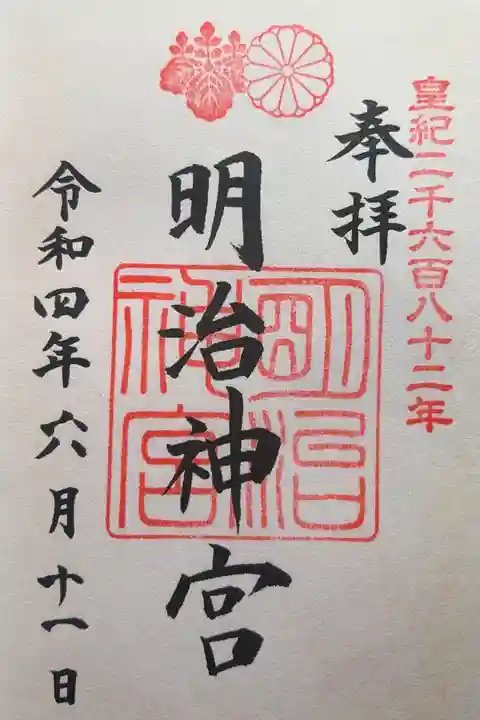 皇紀二千六百八十二年
奉拝
明治神宮
明治
神宮
令和四年六月十一日